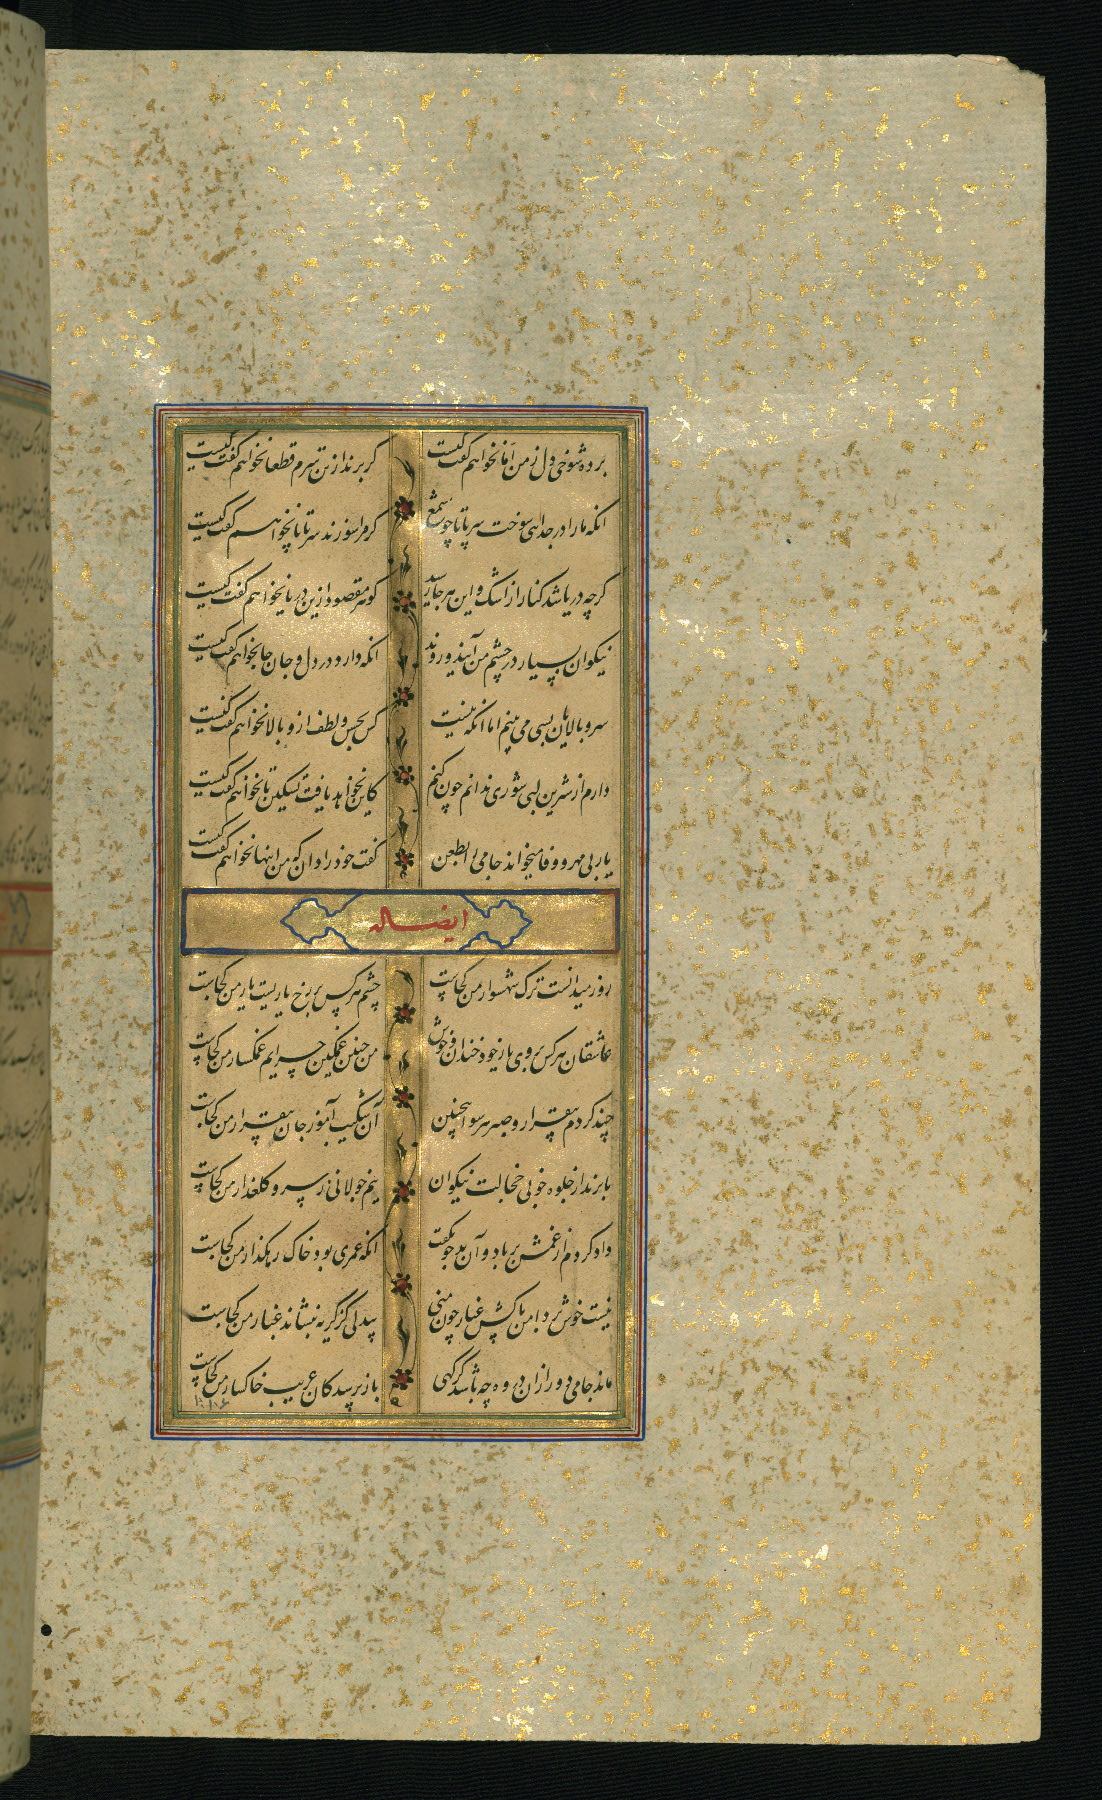 برده شوخی دل ز من اما نخواهم گفت کیست
گر برندازتن سرم قطعا نخواهم گفت کیست
انکه مارا در جدایی سوخت سر تا پا چو شمع
گر مرا سوزند سر تا پا نخواهم گفت کیست
گرچه دریا شد کنار از اشک و این هر جا رسد
گوهر مقصود ازین دریا نخواهم گفت کیست
نیکوان بسیار در چشم من آیند و روند
انکه دارد در دل و جان جا نخواهم گفت کیست
سرو بالایان بسی می بینم اما انکه نیست
کس بحسن و لطف ازو بالا نخواهم گفت کیست
دارم از شیرین لبی شوری ندانم چون کنم
کاین نخواهد یافت تسکین تا نخواهم گفت کیست
یار بی مهر و وفا میخواند جامی را بطعن
گفت خود را دان که من اینها نخواهم گفت کیست
ایضا له
روز میدانست ترک شهسوار من کجاست
چشم هر کس بر رخ یاریست یار من کجاست
عاشقان هر کس بروی یار خود خندان و خوش
من چنین غمگین چرایم غمگسار من کجاست
چند گردم بیقرار و صبر هر سو اینچنین
آن شکیب آموز جان بیقرار من کجاست
تا برند از جلوه خوبی خجالت نیکوان
نیم جولانی ز سرو گلعذار من کجاست
داد کردم از غمش بر باد و آن بدخو نگفت
انکه عمری بود خاک رهگذار من کجاست
نیست خوش بر دامن پاکش غبار چون منی
بیدلی کز گریه بنشاند غبار من کجاست
ماند جامی دور ازان در وه چه باشد گر گهی
باز پرسد کان غریب خاکسار من کجاست